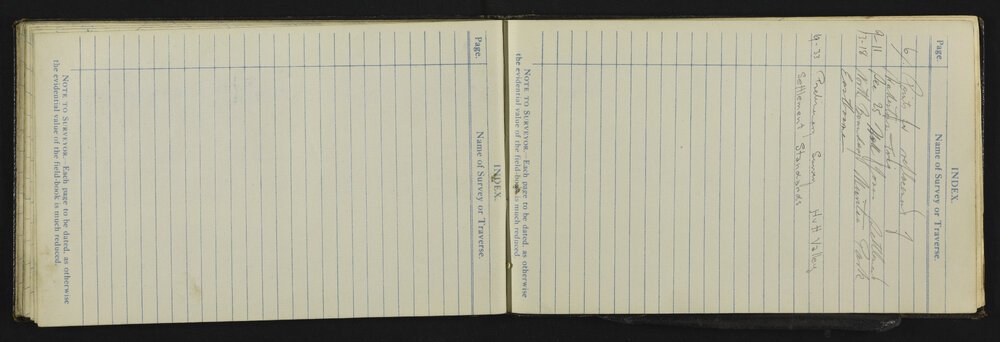 INDEX.
Page. Name of Survey or Traverse.
6 Points for replacement of
9-11 Sec 25
12-18 North Boundary Park
Eastbourne
19-33 Preliminary Survey Hutt Valley
Settlement Standards
NOTE TO SURVEYOR.—Each page to be dated, as otherwise
the evidential value of the field-book is much reduced.
INDEX.
Page. Name of Survey or Traverse.
NOTE TO SURVEYOR.—Each page to be dated, as otherwise
the evidential value of the field-book is much reduced.